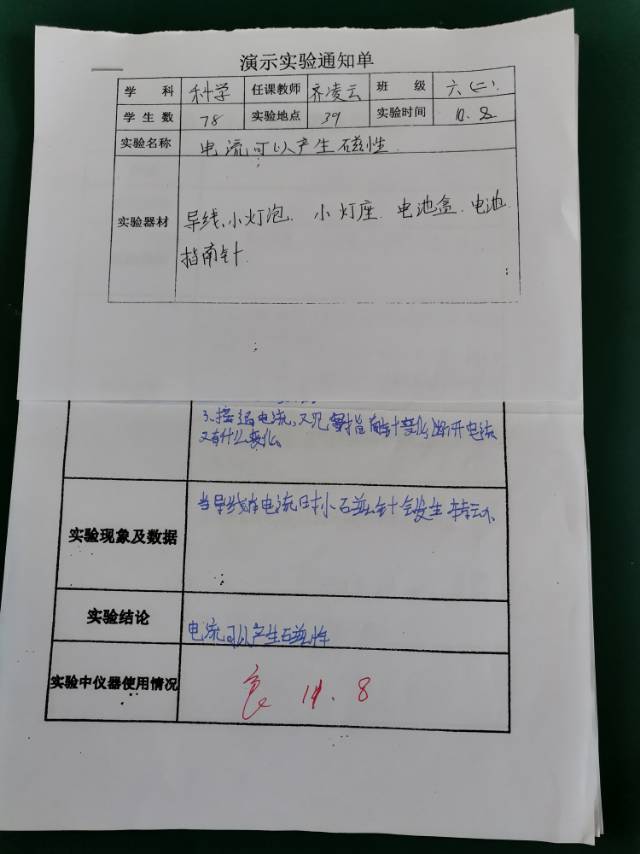 演示实验通知单
学 科 科学 任课教师 齐凌云 班 级 六(二)
学生数 78 实验地点 39 实验时间 10.8
实验名称 电流可以产生磁性
实验器材 导线、小灯泡、小灯座、电池盒、电池
指南针
3、接通电流,观察指南针变化,断开电流
又有什么变化
实验现象及数据 当导线有电流时小磁针会发生转动
实验结论 电流可以产生磁性
实验中仪器使用情况 良 10.8